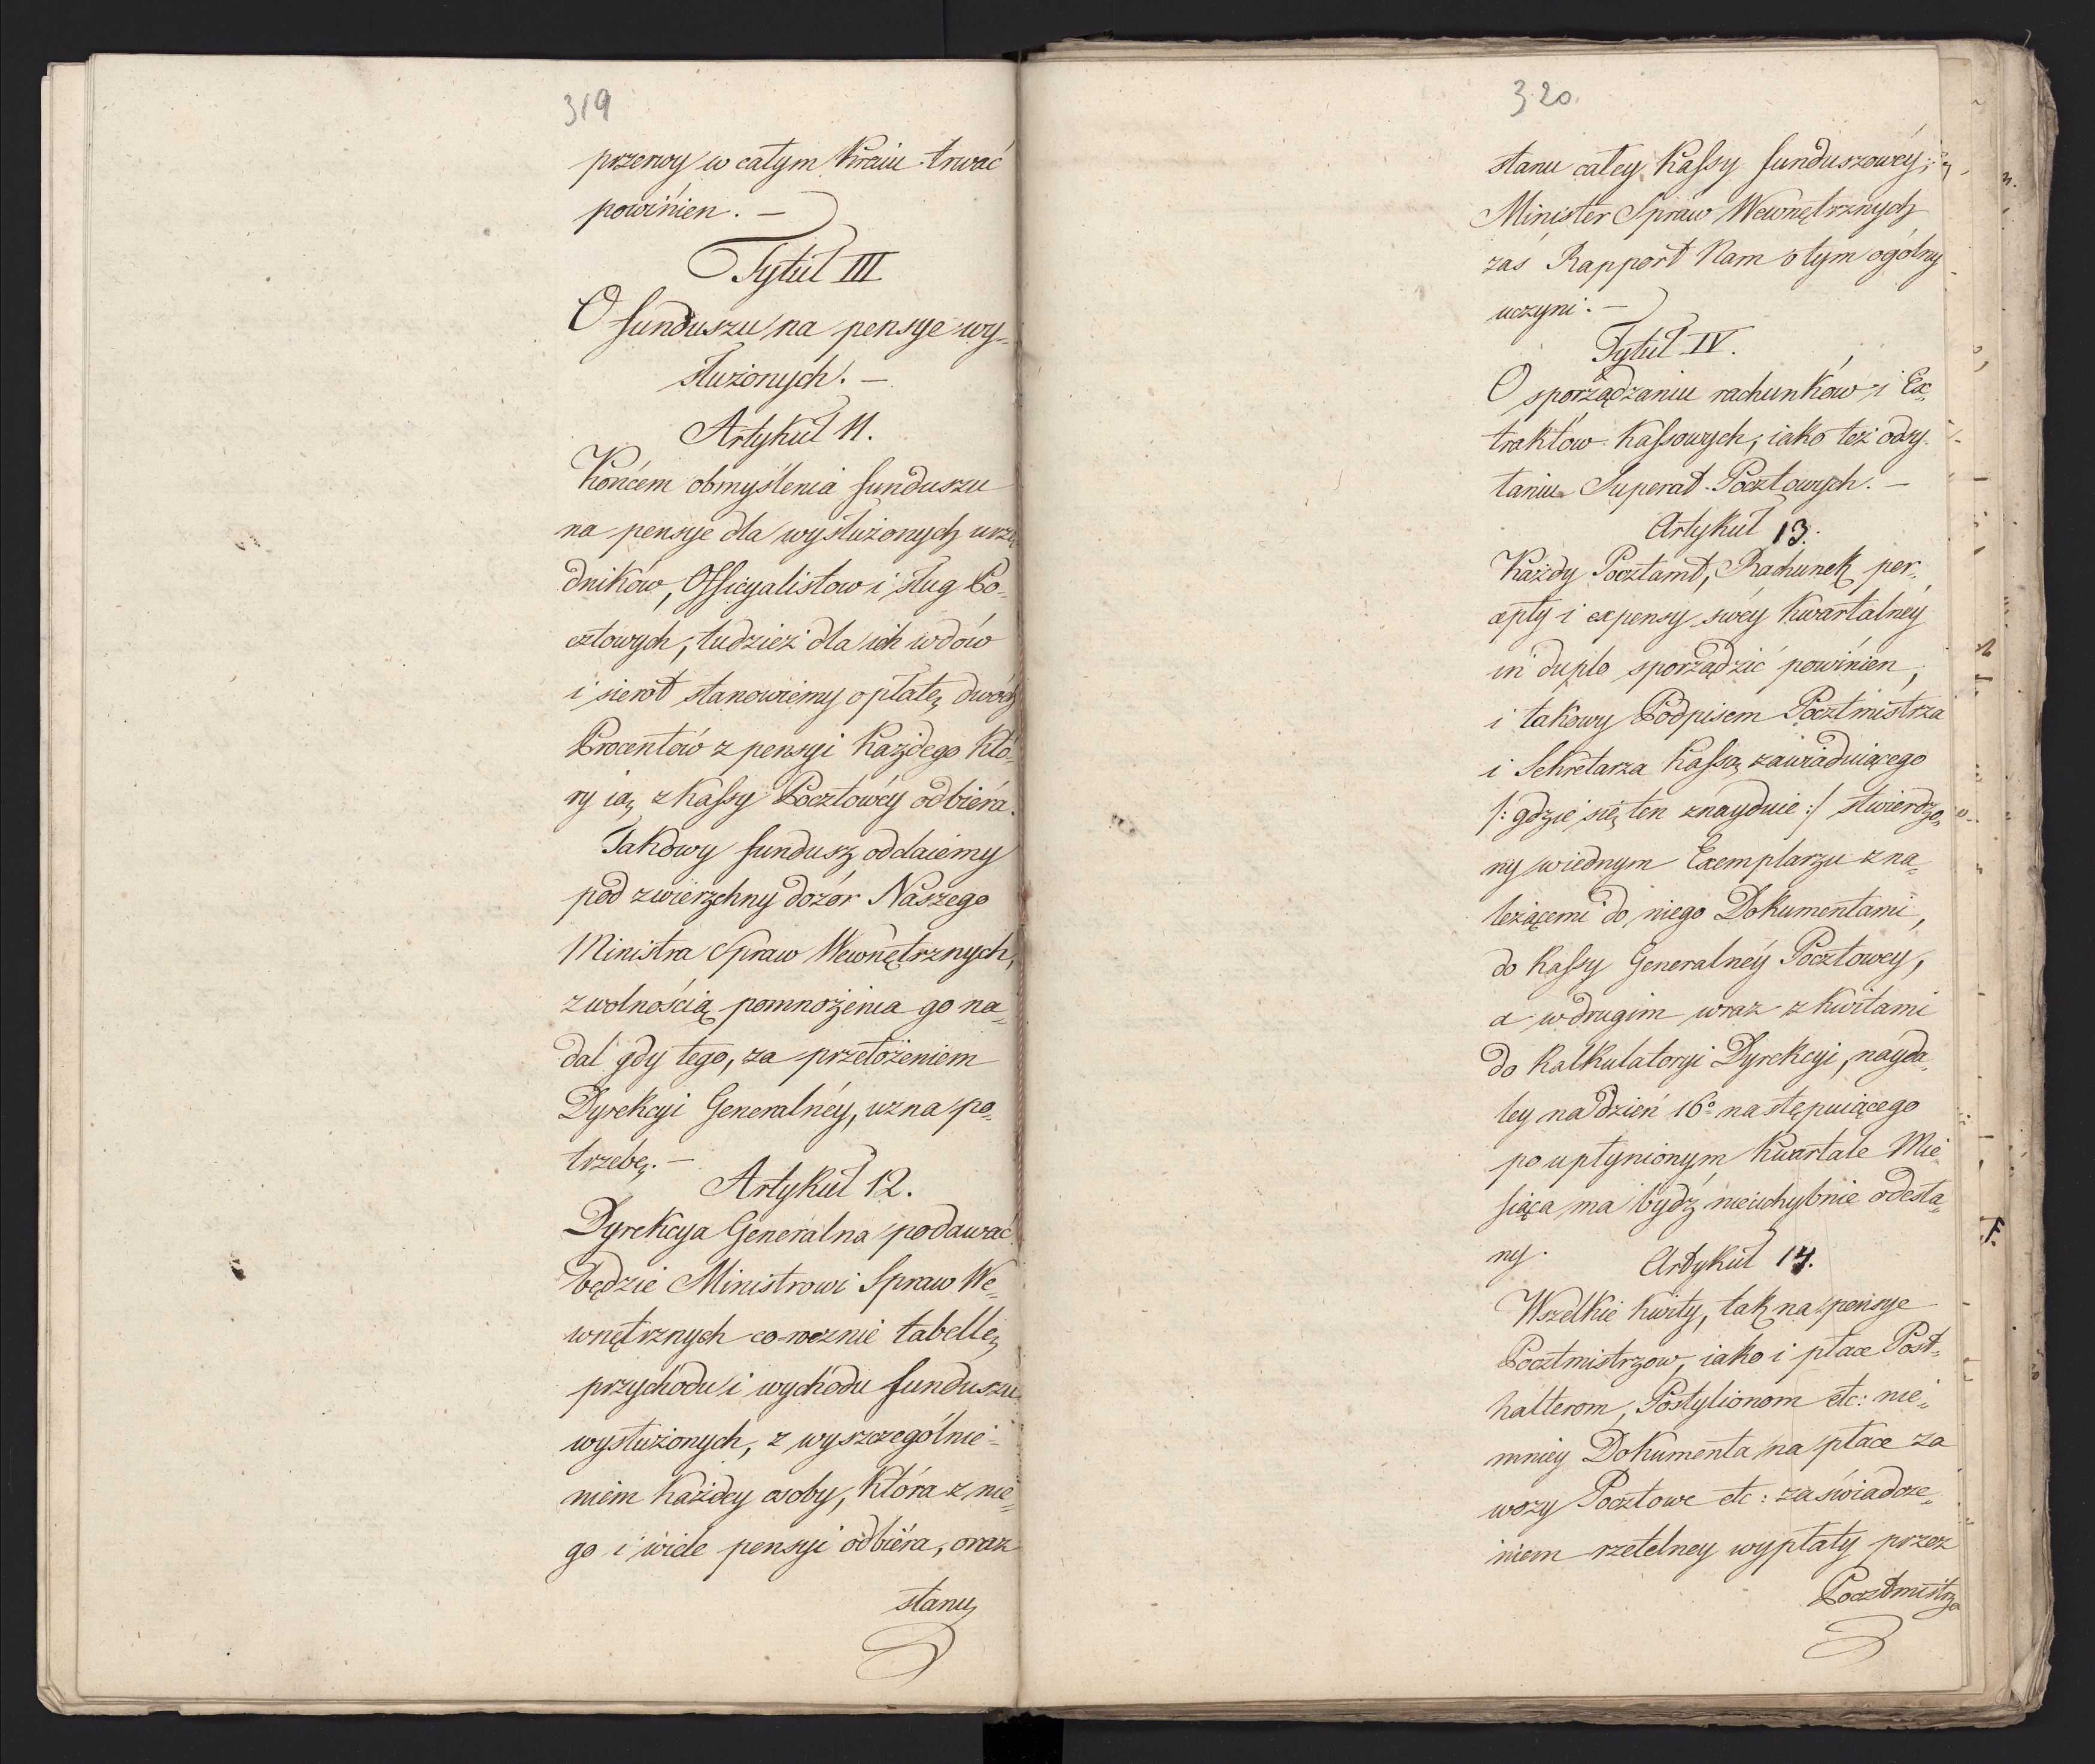 319
przerwy w całym Kraiu trwać
powinien. —
Tytuł III
O funduszu na pensye wy=
służonych. —
Artykuł 11.
Końcem obmyślenia funduszu
na pensye dla wysłużonych urzę
dników, Officyalistow i sług Po=
cztowych, tudzież dla ich wdów
i sierot stanowiemy opłatę dwóch
Procentów z pensyi każdego któ=
ry ią z kassy Pocztowéy odbiéra.
Takowy fundusz oddaiemy
pod zwierzchny dozór Naszego
Ministra Spraw Wewnętrznych,
z wolnością pomnożenia go na=
dal gdy tego, za przełożeniem
Dyrekcyi Generalnéy, uzna po=
trzebę. —
Artykuł 12.
Dyrekcya Generalna podawać
będzie Ministrowi Spraw We=
wnętrznych co-rocznie tabellę
przychodu i wychodu funduszu
wysłużonych, z wyszczególnie=
niem każdey osoby, która z nie=
go i wiele pensyi odbiéra, oraz
stanu
320.
stanu całey kassy funduszowéy;
Minister Spraw Wewnętrznych
zaś Rapport Nam o tym ogólny
uczyni. —
Tytuł IV.
O sporządzaniu rachunków i Ex=
traktów kassowych, iako też odsy=
łaniu Superat Pocztowych. —
Artykuł 13.
Każdy Pocztamt, Rachunek per=
cepty i expensy swéy kwartalnéy
in duplo sporządzić powinien,
i takowy Podpisem Pocztmistrza
i Sekretarza kassą zawiaduiącego
/: gdzie się ten znayduie :/ stwierdzo=
ny w iednym Exemplarzu z na=
leżącemi do niego Dokumentami,
do kassy Generalnéy Pocztowey,
a w drugim wraz z kwitami
do Kalkulatoryi Dyrekcyi, nayda=
ley na dzień 16º następuiącego
po upłynionym kwartale Mie=
siąca ma bydź nieuchybnie odesła=
ny.
Artykuł 14.
Wszelkie kwity, tak na pensye
Pocztmistrzow, iako i płace Post=
halterom, Postylionom etc: nie=
mniey Dokumenta na płace za
wozy Pocztowe etc: zaświadcze=
niem rzetelney wypłaty przez
Pocztmistrza